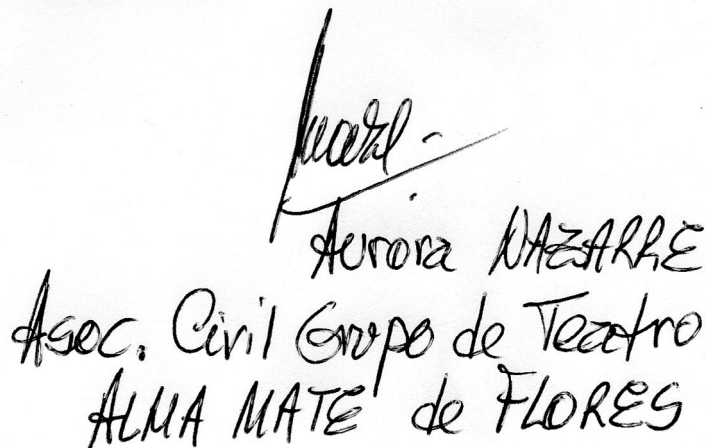 Aurora NAZARRE
Asoc. Civil Grupo de Teatro
ALMA MATE de FLORES